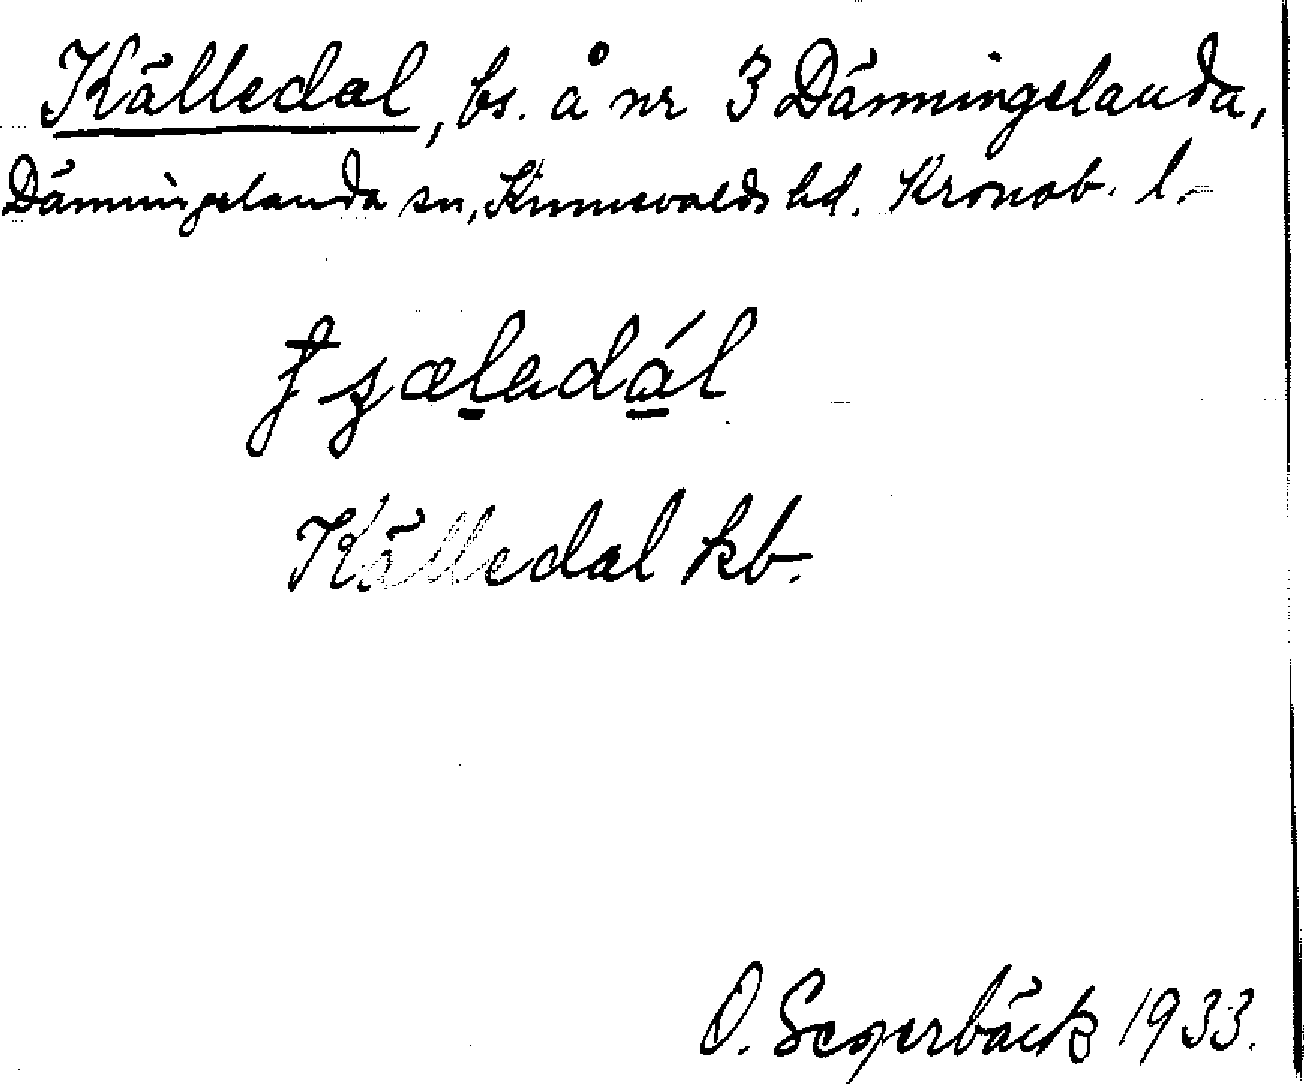 Källedal, bs. å nr 3 Dänningelanda,
Dänningelanda sn, Kinnevalds hd. Kronob. l.
Källedal kb.
O. Segerbäck 1933.